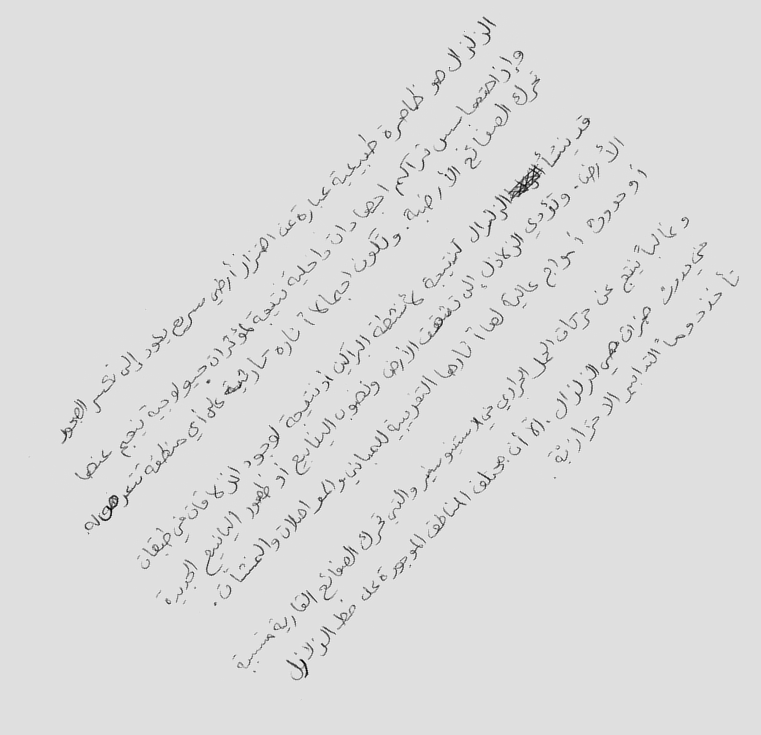 الزلزال هو ظاهرة طبيعية عبارة عن اهتزاز أرضي سريع يعود إلى تكسر الصخور
وإزاحتها بسبب تراكم اجهادات داخلية نتيجة لمؤثرات جيولوجية ينجم عنها
تحرك الصفائح الأرضية. وتكون اجمالا آثاره كارثية على أي منطقة تتعرض له.
قد ينشأ الزلزال كنتيجة لأنشطة البراكين أو نتيجة لوجود انزلاقات في طبقات
الأرض. وتؤدي الزلازل إلى تشقق الأرض ونضوب الينابيع أو ظهور الينابيع الجديدة
أو حدوث أمواج عالية لها آثارها التخريبية للمباني والمواصلات والمنشآت.
وغالباً ينتج عن حركات الحمل الحراري في الاستينوسفير والتي تحرك الصفائح القارية متسببة
في حدوث هزات هي الزلازل. إلا أن مختلف المناطق الموجودة على خط الزلازل
تأخذ دوما التدابير الاحترازية.